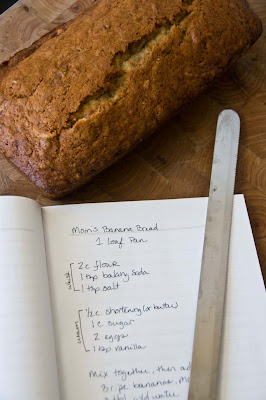 Mom's Banana Bread
1 Loaf Pan
2 c flour
1 tsp baking soda
1 tsp salt
1/2 c shortening (or butter)
1 c sugar
2 eggs
1 tsp vanilla
Mix together, then
bananas,
cold water